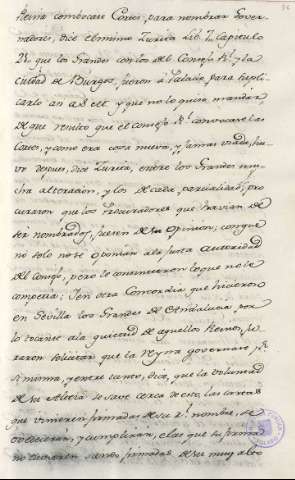 Reina combocase Cortes, para nombrar Gover-
nadores, dice el mismo Zurita Lib. 7. Capitulo
que los Grandes con los del Consejo R.l y la
ciudad de Burgos, fueron a Palacio para supli-
carlo an a S. Alt.a y que no lo quiso mandar,
de que resulto que el consejo R.l convocase las
Cortes, y como era cosa nueva, y jamas usada, hu-
vo despues, dice Zurita, entre los Grandes mu-
cha alteracion, y los de cada parcialidad, pro
curaron que los Procuradores que havian de
ser nombrados, fuesen de su opinion; conque
no solo no se oponian a la justa autoridad
del Consejo, pero le convencieron lo que no le
competia; Y en otra Concordia que hicieron
en Sevilla los Grandes de Andalucia por
lo tocante a la quietud de aquellos Reinos, ju-
raron solicitar que la Reyna governase p.r
si misma, y entre tanto, dice, que la voluntad
de su Alteza se save cerca de esto, las cartas
que vinieren firmadas de su R.l nombre, se
obedeceran, y cumpliran, e las que su firma
no trugeren siendo firmadas de su muy alto